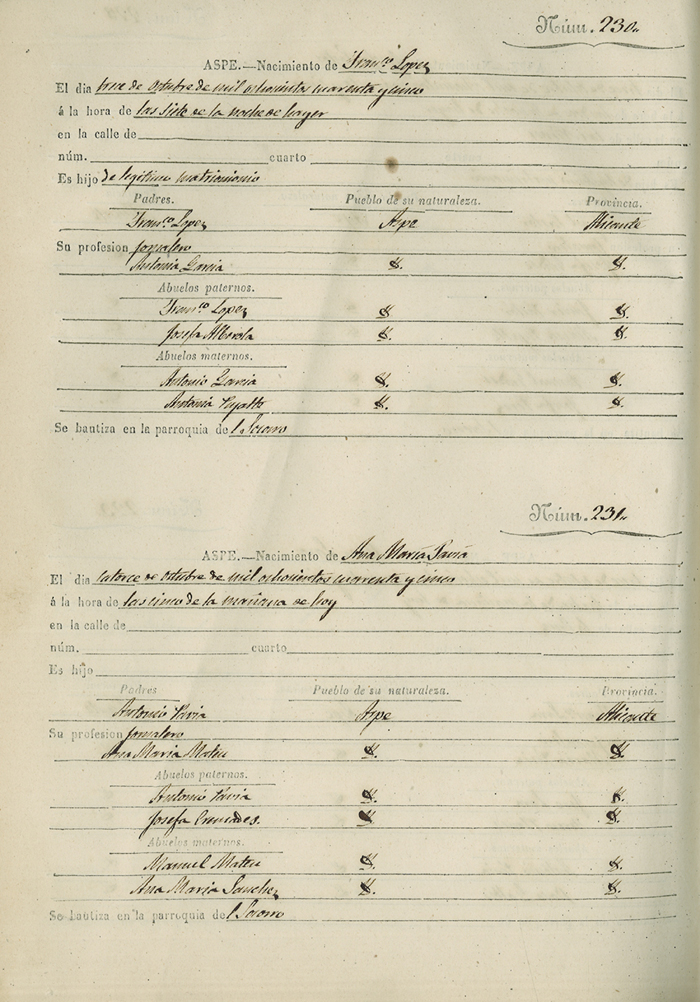 Núm. 230„
ASPE.—Nacimiento de Franco Lopez
El dia trece de Octubre de mil ochocientos cuarenta y cinco
á la hora de las siete de la noche de hayer
en la calle de
núm. cuarto
Es hijo de legitimo matrimonio
Padres. Pueblo de su naturaleza. Provincia.
Franco Lopez Aspe Alicante
Su profesion jornalero
Antonia Garcia
Abuelos paternos.
Franco Lopez
Josefa Alberola
Abuelos maternos.
Antonio Garcia
Antonia
Se bautiza en la parroquia de l Socorro
Núm. 231„
ASPE.—Nacimiento de Ana María Pavia
El dia catorce de octubre de mil ochocientos cuarenta y cinco
á la hora de las cinco de la mañana de hoy
en la calle de
núm. cuarto
Es hijo
Padres Pueblo de su naturaleza. Provincia.
Antonio Pavia Aspe Alicante
Su profesion jornalero
Ana Maria Mateu
Abuelos paternos.
Antonio Pavia
Josefa
Abuelos maternos.
Manuel Mateu
Ana Maria Sanchez
Se bautiza en la parroquia de l Socorro